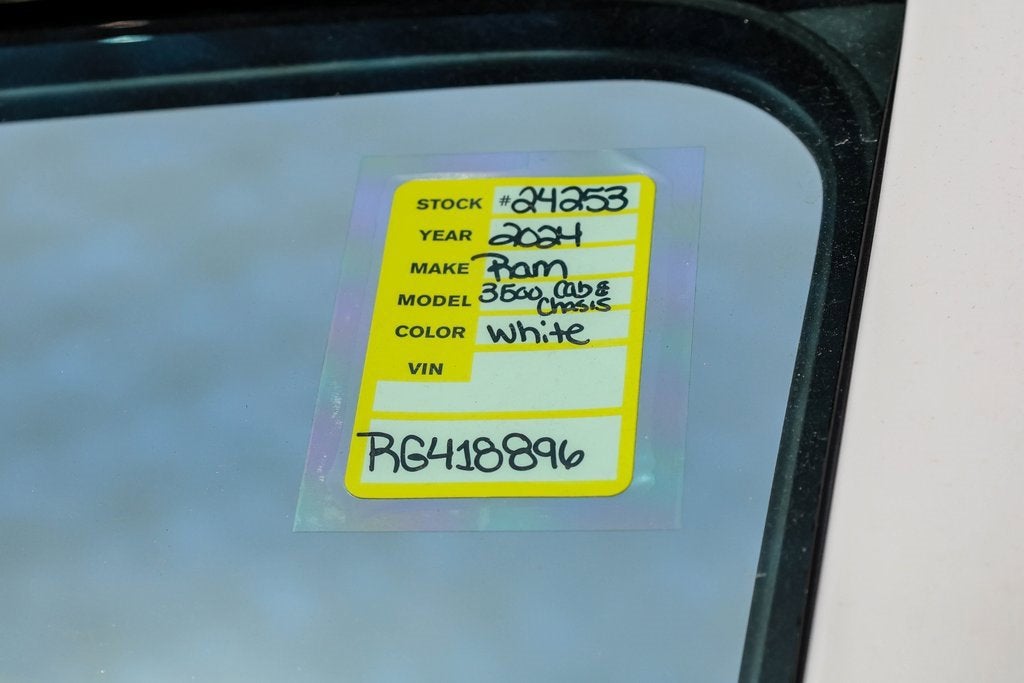 STOCK #24253
YEAR 2024
MAKE Ram
MODEL 3500 Cab &
Chasis
COLOR White
VIN
RG418896